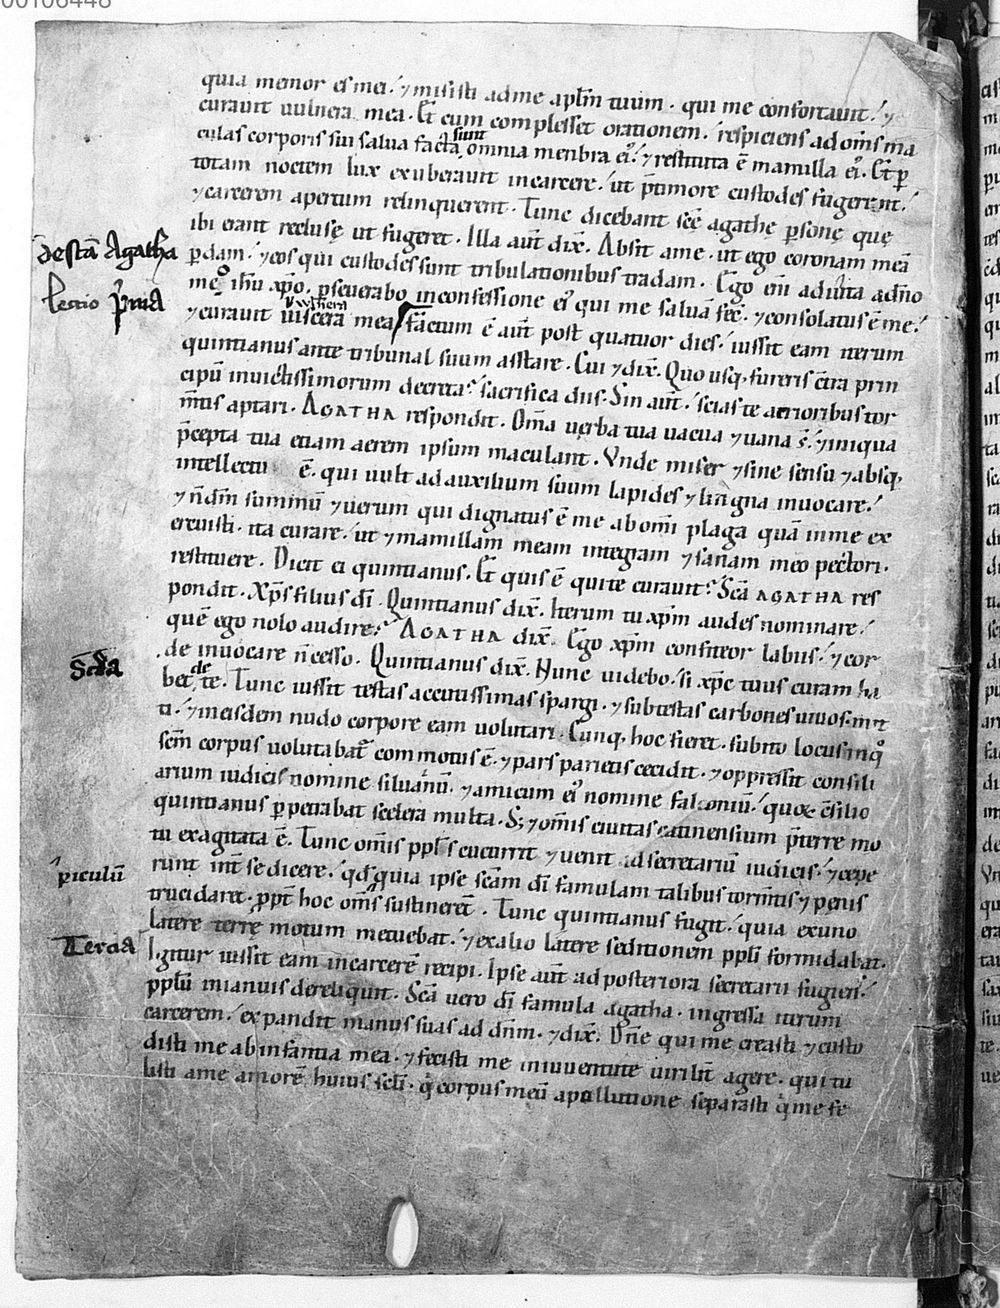 00106448
quia memor es mei. ⁊ misisti ad me aplm tuum. qui me confortauit. ⁊
curauit uulnera mea. Et cum complesset orationem. respiciens ad oms ma
culas corporis sui salua facta sunt omnia menbra ei. ⁊ restituta ē mamilla ei. Et p
totam noctem lux exuberauit in carcere. ut p timore custodes fugerent.
⁊ carcerem apertum relinquerent. Tunc dicebant scę agathę psonę quę
ibi erant reclusę ut fugeret. Illa aut dix. Absit a me. ut ego coronam meā
pdam. ⁊ eos qui custodes sunt tribulationibus tradam. Ego eni adiuta a dno
meo ihu xpo. pseuerabo in confessione ei qui me saluā fec. ⁊ consolatus ē me.
⁊ curauit uiscera mea factum ē aut post quatuor dies. iussit eam iterum
de sta Agatha
lectio p̄ma
quintianus ante tribunal suum astare. Cui ⁊ dix. Quo usq, fureris cont̄ra prin
cipū inuictissimorum decreta? sacrifica diis. Sin aut. scias te acrioribus tor
mtis aptari. AGATHA respondit. Oma uerba tua uacua ⁊ uana s. ⁊ iniqua
pcepta tua etiam aerem ipsum maculant. Vnde miser ⁊ sine sensu ⁊ absq,
intellectu ē. qui uult ad auxilium suum lapides ⁊ lingna inuocare.
⁊ n dm summū ⁊ uerum qui dignatus ē me ab omi plaga quā in me ex
ercuisti. ita curare. ut ⁊ mamillam meam integram ⁊ sanam meo pectori
restituere. Dicit ei quintianus. Et quis ē qui te curauit? Scā AGATHA res
pondit. Xps filius di. Quintianus dix. Iterum tu xpm audes nominare.
quē ego nolo audire? AGATHA dix. Ego xpm confiteor labiis. ⁊ cor
de inuocare n cesso. Quintianus dix. Nunc uidebo. si xpc tuus curam ha
Scda
bet de te. Tunc iussit testas acutissimas spargi. ⁊ sub testas carbones uiuos mit
ti. ⁊ in eisdem nudo corpore eam uolutari. Cunq, hoc fieret. subito locus in q
scm corpus uolutabat commotus ē. ⁊ pars parietis cecidit. ⁊ oppressit consili
arium iudicis nomine siluanū. ⁊ amicum ei nomine falconiū. quox csilio
quintianus ppetrabat scelera multa. S; ⁊ omis ciuitas catinensium p terre mo
tu exagitata ē. Tunc omis ppls cucurrit ⁊ uenit ad secretariū iudicis. ⁊ cepe
runt int se dicere. qd quia ipse scam di famulam talibus tormtis ⁊ penis
piculū
trucidaret. ppt hoc oms sustineret. Tunc quintianus fugit. quia ex uno
latere terrę motum metuebat. ⁊ ex alio latere seditionem ppli formidabat.
Tercia
Igitur iussit eam in carcerē recipi. Ipse aut ad posteriora secretarii fugiens.
pplū in ianuis dereliquit. Scā uero di famula agatha. ingressa iterum
carcerem. expandit manus suas ad dnm. ⁊ dix. Dne qui me creasti ⁊ custo
disti me ab infantia mea. ⁊ fecisti me in iuuentute uirilit agere. qui tu
listi a me amorē huius scli. q corpus meū a pollutione separasti q me fe